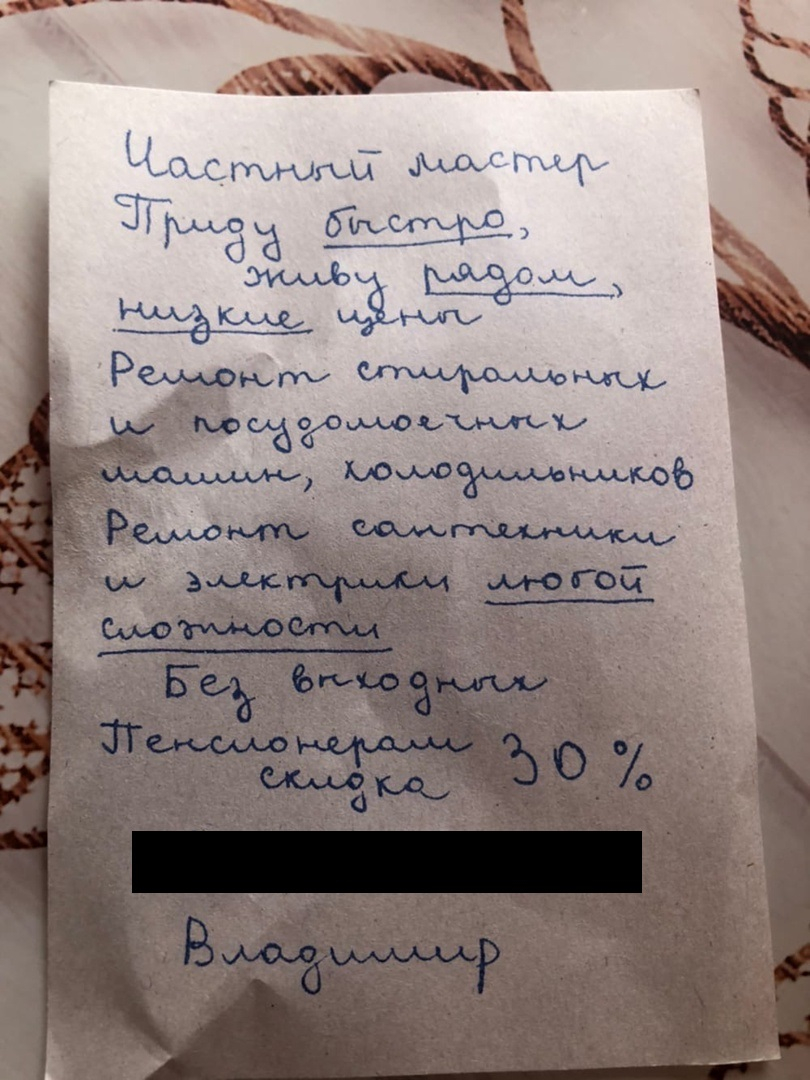 Частный мастер
Приду быстро,
живу рядом,
низкие цены
Ремонт стиральных
и посудомоечных
машин, холодильников
Ремонт сантехники
и электрики любой
сложности
Без выходных
Пенсионерам 30%
скидка
Владимир